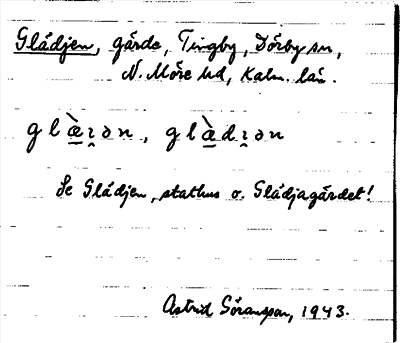 Glädjen, gärde, Tingby, Dörby sn,
N. Möre hd, Kalm. län.
glæ̠̀ɪ̯ən, glæ̠̀dɪ̯ən
Se Glädjen, stathus o. Glädjagärdet!
Astrid Göransson, 1943.